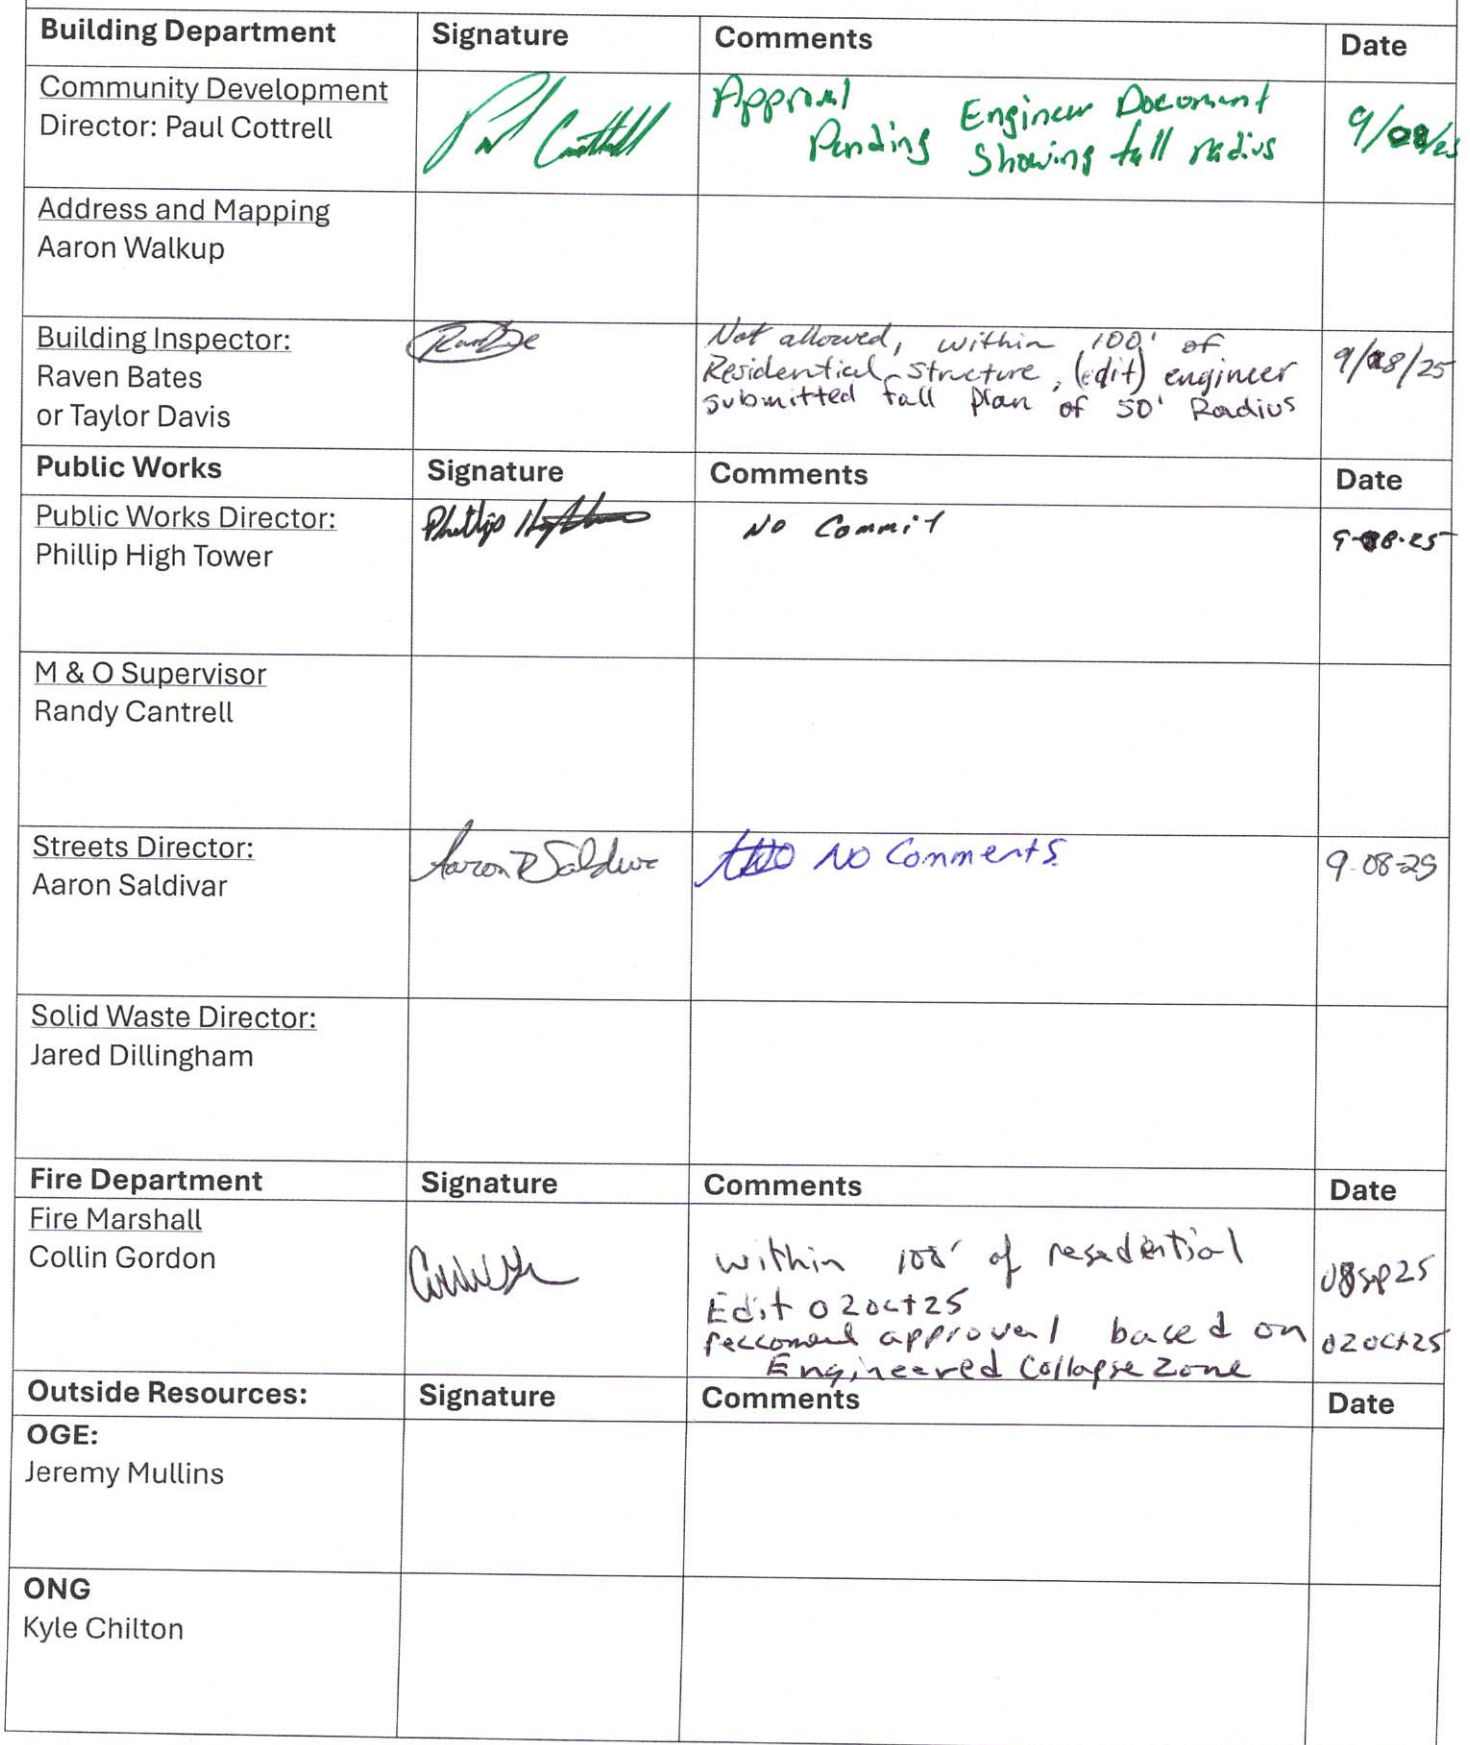 Building Department Signature Comments Date
Community Development
Director: Paul Cottrell
Paul Cottrell
Approval
Pending
Engineer Document
Showing fall radius
9/08/25
Address and Mapping
Aaron Walkup
Building Inspector:
Raven Bates
or Taylor Davis
Not allowed, within 100' of
Residential structure, (edit) engineer
submitted fall plan of 50' Radius
9/08/25
Public Works Signature Comments Date
Public Works Director:
Phillip High Tower
Phillip Hightower
No Commit
9-08-25
M & O Supervisor
Randy Cantrell
Streets Director:
Aaron Saldivar
Aaron R Saldivar
No Comments.
9-08-25
Solid Waste Director:
Jared Dillingham
Fire Department Signature Comments Date
Fire Marshall
Collin Gordon
within 100' of resedential
Edit 02oct25
reccomend approval based on
Engineered Collapse Zone
08Sep25
02oct25
Outside Resources: Signature Comments Date
OGE:
Jeremy Mullins
ONG
Kyle Chilton